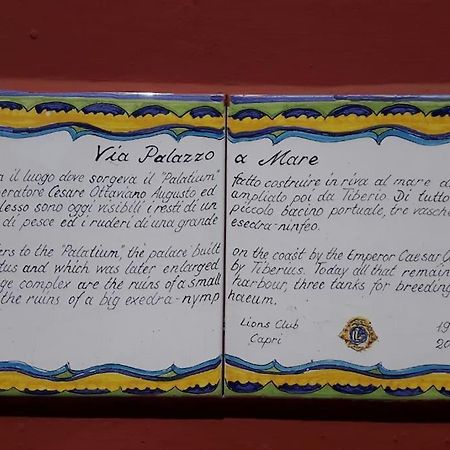 Via Palazzo a Mare
il luogo dove sorgeva il "Palatium" fatto costruire in riva al mare
Cesare Ottaviano Augusto ed ampliato poi da Tiberio. Di tutto
sono oggi visibili i resti di un piccolo bacino portuale, tre vasche
di pesce ed i ruderi di una grande esedra-ninfeo.
to the "Palatium", the palace built on the coast by the Emperor Caesar
and which was later enlarged by Tiberius. Today all that remain
complex are the ruins of a small harbour, three tanks for breeding
the ruins of a big exedra-nymp haeum.
Lions Club
Capri